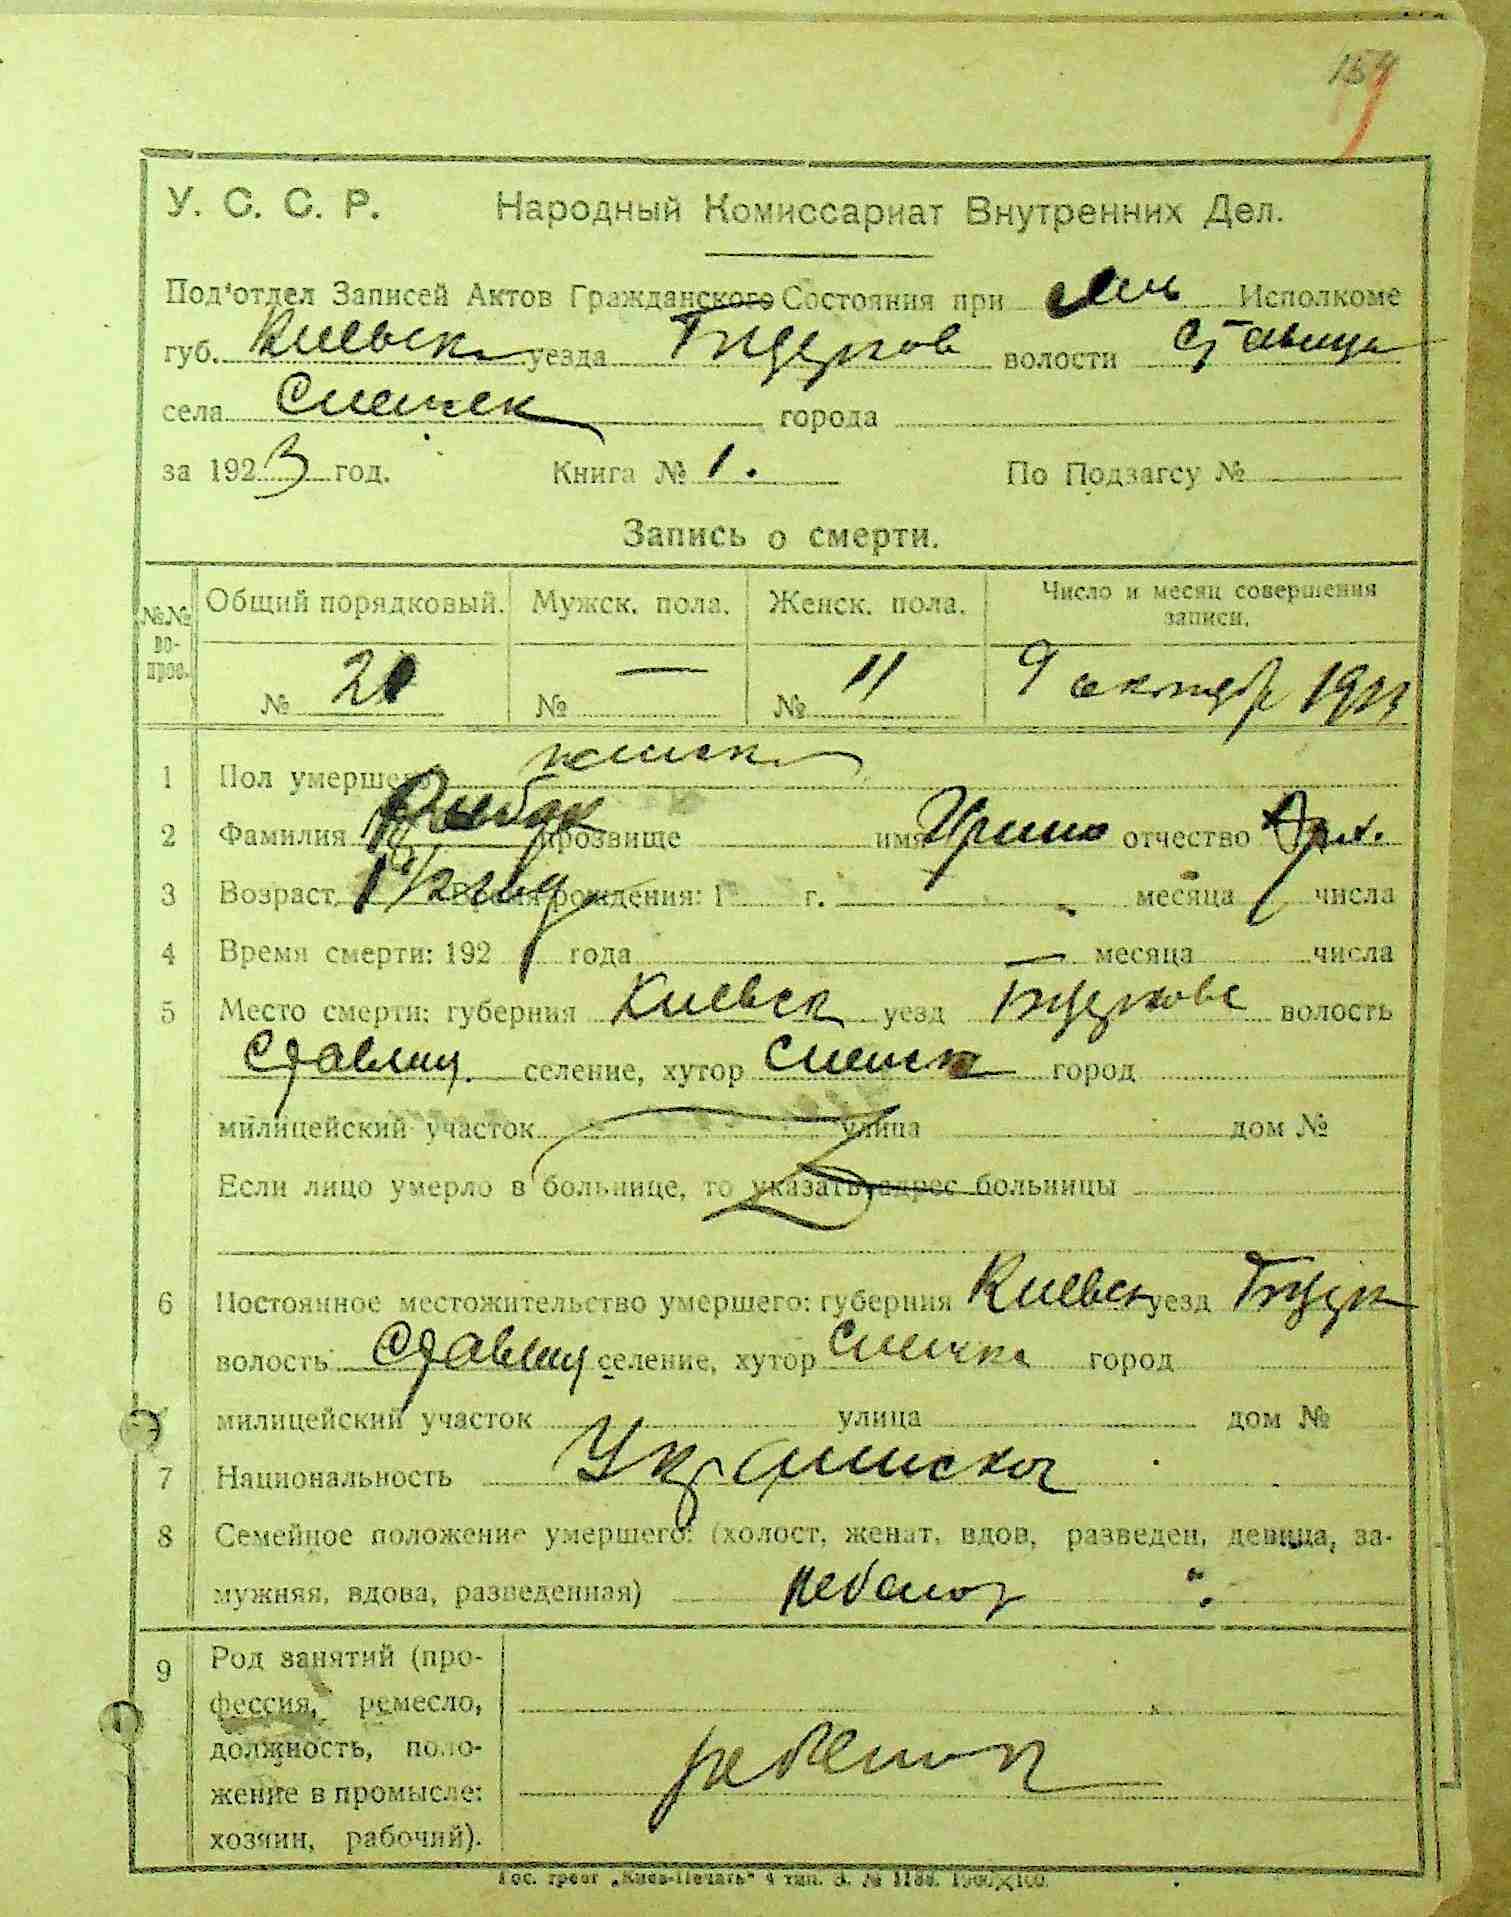 154
У. С. С. Р. Народный Комиссариат Внутренних Дел.
Под'отдел Записей Актов Гражданского Состояния при Исполкоме
губ. Киевск уезда Бцерков волости Ставищ
села города
за 1923 год. Книга № 1. По Подзагсу №
Запись о смерти.
№№ вопрос. Общий порядковый. Мужск. пола. Женск. пола. Число и месяц совершения записи.
№ № — № 11 9 октябр 1923
1 Пол умершего женск
2 Фамилия Рыбак прозвище имя Ирина отчество
3 Возраст 1 1/2 год Время рождения: 1 г. месяца числа
4 Время смерти: 192 года — месяца числа
5 Место смерти: губерния Киевск уезд Бцерковс волость
Ставищ. селение, хутор город
милицейский участок улица дом №
Если лицо умерло в больнице, то указать адрес больницы
6 Постоянное местожительство умершего: губерния Киевск уезд Бцерк
волость Ставищ селение, хутор город
милицейский участок улица дом №
7 Национальность Украинская
8 Семейное положение умершего: (холост, женат, вдов, разведен, девица, за-
мужняя, вдова, разведенная) ребенок
9 Род занятий (про-
фессия, ремесло,
должность, поло-
жение в промысле: ребенок
хозяин, рабочий).
Гос. трест „Киев-Печать" 4 тип. З. № 1188. 1000×100.